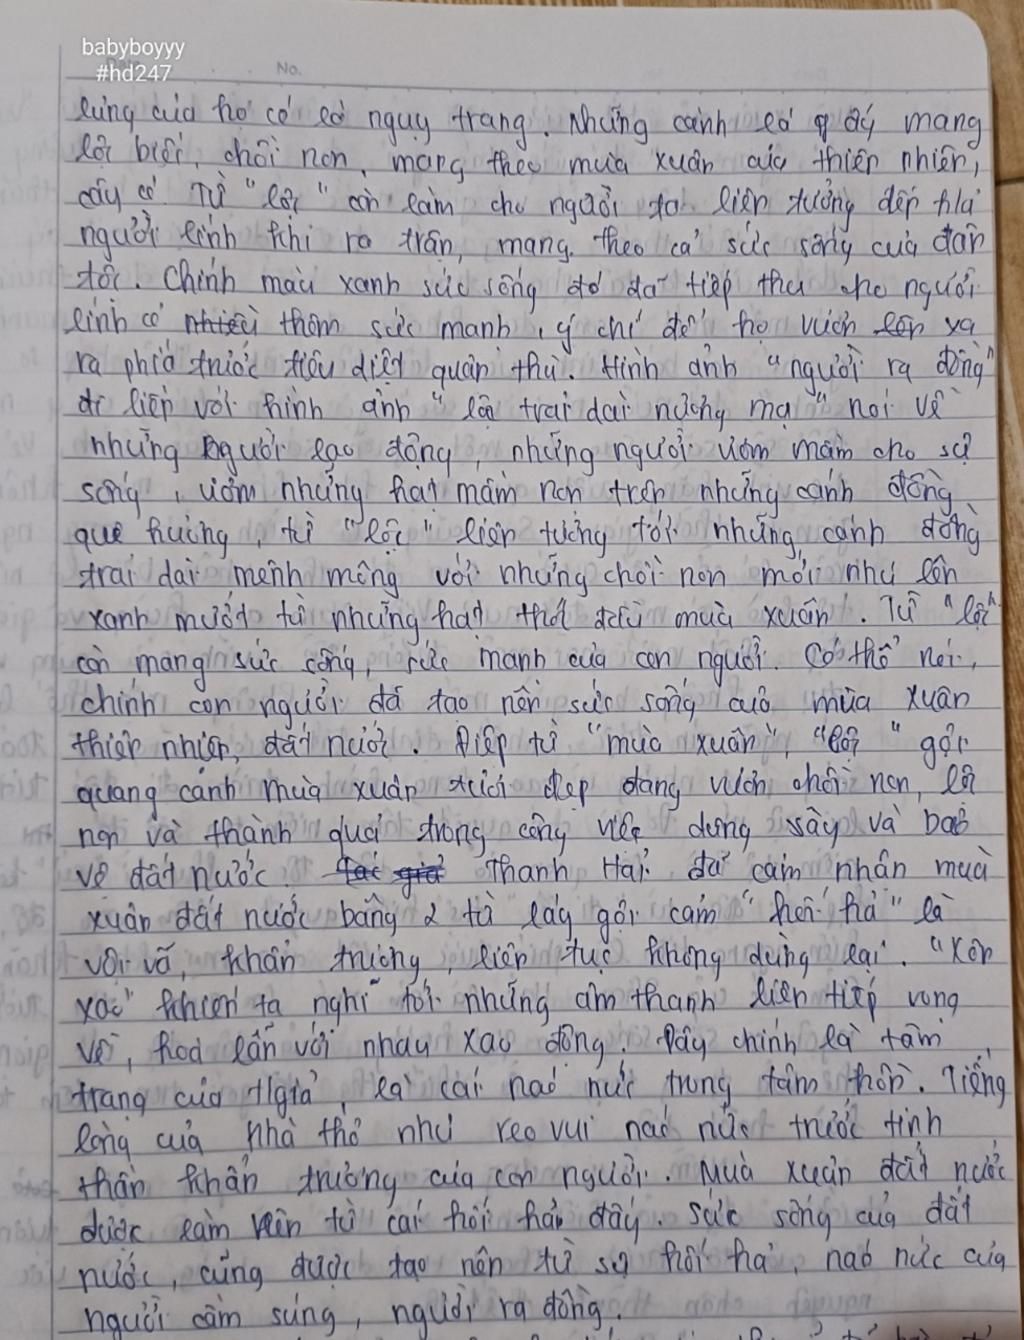 babyboyyy
#hd247
No.
lưng của họ có lá ngụy trang. Những cành lá ấy mang
lộc biếc, chồi non, mang theo mùa xuân của thiên nhiên,
cây cỏ. Từ "lộc" còn làm cho người ta liên tưởng đến
người lính khi ra trận, mang theo cả sức sống của dân
tộc. Chính màu xanh sức sống đó đã tiếp thu cho người
lính có nhiều thêm sức mạnh, ý chí để họ vươn lên
ra phía trước tiêu diệt quân thù. Hình ảnh "người ra đồng"
đi liền với hình ảnh "lộc trải dài nương mạ" nói về
những người lao động, những người ươm mầm cho sự
sống, ươm những hạt mầm non trên những cánh đồng
quê hương, từ "lộc" liên tưởng tới những cánh đồng
trải dài mênh mông với những chồi non mới nhú lên
xanh mướt từ những hạt thóc đầu mùa xuân. Từ "lộc"
còn mang sức sống, sức mạnh của con người. Có thể nói,
chính con người đã tạo nên sức sống của mùa xuân
thiên nhiên, đất nước. Điệp từ "mùa xuân", "lộc" gợi
quang cảnh mùa xuân tươi đẹp đang vươn chồi nẩn, lộc
non và thành quả trong công việc dựng xây và bảo
vệ đất nước. tác giả Thanh Hải đã cảm nhận mùa
xuân đất nước bằng 2 từ láy gợi cảm "hối hả" là
vội vã, khẩn trương, liên tục không dừng lại. "Xôn
xao" khiến ta nghĩ tới những âm thanh liên tiếp vọng
về, hoà lẫn với nhau xao động. Đây chính là tâm
trạng của t/giả, là cái náo nức trong tâm hồn. Tiếng
lòng của nhà thơ như reo vui náo nức trước tinh
thần khẩn trương của con người. Mùa xuân đất nước
được làm nên từ cái hối hả đấy. Sức sống của đất
nước, cũng được tạo nên từ sự hối hả, náo nức của
người cầm súng, người ra đồng.